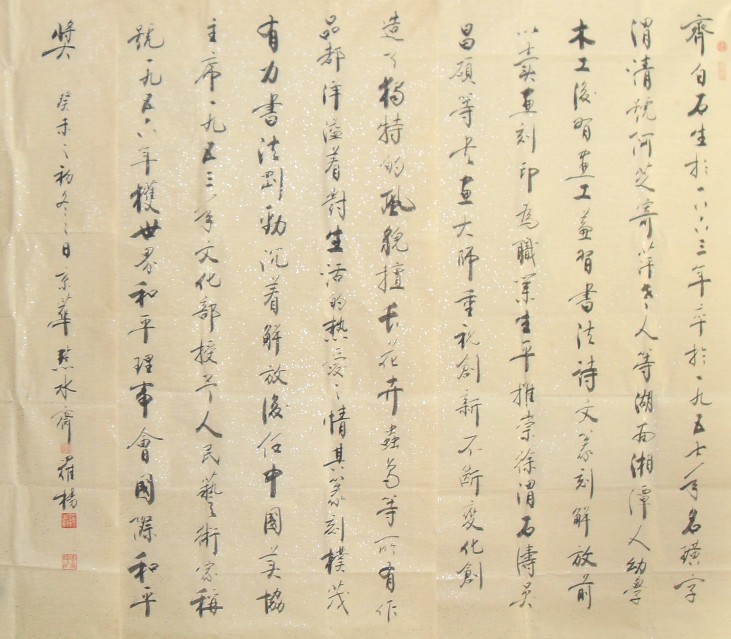 齊白石生於一八六三年卒於一九五七年名璜字
渭清號阿芝寄萍老人等湖南湘潭人幼學
木工後習畫工兼習書法詩文篆刻解放前
以賣畫刻印為職業生平推崇徐渭石濤吳
昌碩等書畫大師重視創新不斷變化創
造了獨特的風貌擅長花卉蟲鳥等所有作
品都洋溢着對生活的熱愛之情其篆刻樸茂
有力書法剛勁沉着解放後任中國美協
主席一九五三年文化部授予人民藝術家稱
號一九五六年獲世界和平理事會國際和平
獎 癸未之初冬之日京華 水齋 羅楊